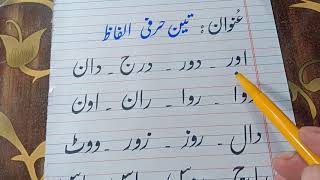 عُنوان: تین حرفی الفاظ
اور ۔ دور ۔ درج ۔ دان
روا ۔ ران ۔ اون
دال ۔ روز ۔ زور ۔ ووٹ